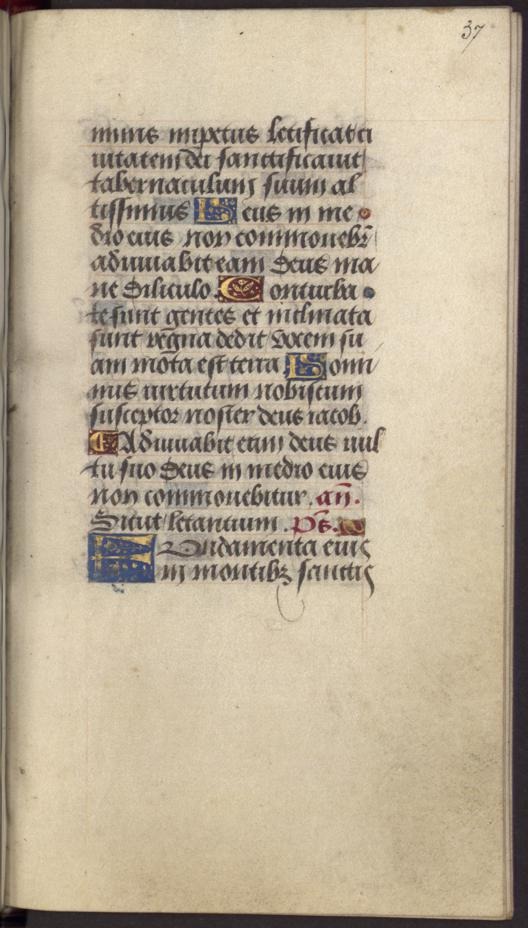 37
minis impetus letificat ci
uitatem dei sanctificauit
tabernaculum suum al
tissimus Deus in me
dio eius non commouebr̄
adiuuabit eam deus ma
ne diliculo. Conturba
te sunt gentes et inclinata
sunt regna dedit vocem su
am mota est terra Domi
nus uirtutum nobiscum
susceptor noster deus iacob.
Adiuuabit eam deus uul
tu suo Deus in medio eius
non commouebitur. an̄.
Sicut letantium. ps.
Fundamenta eius
in montibꝫ sanctis